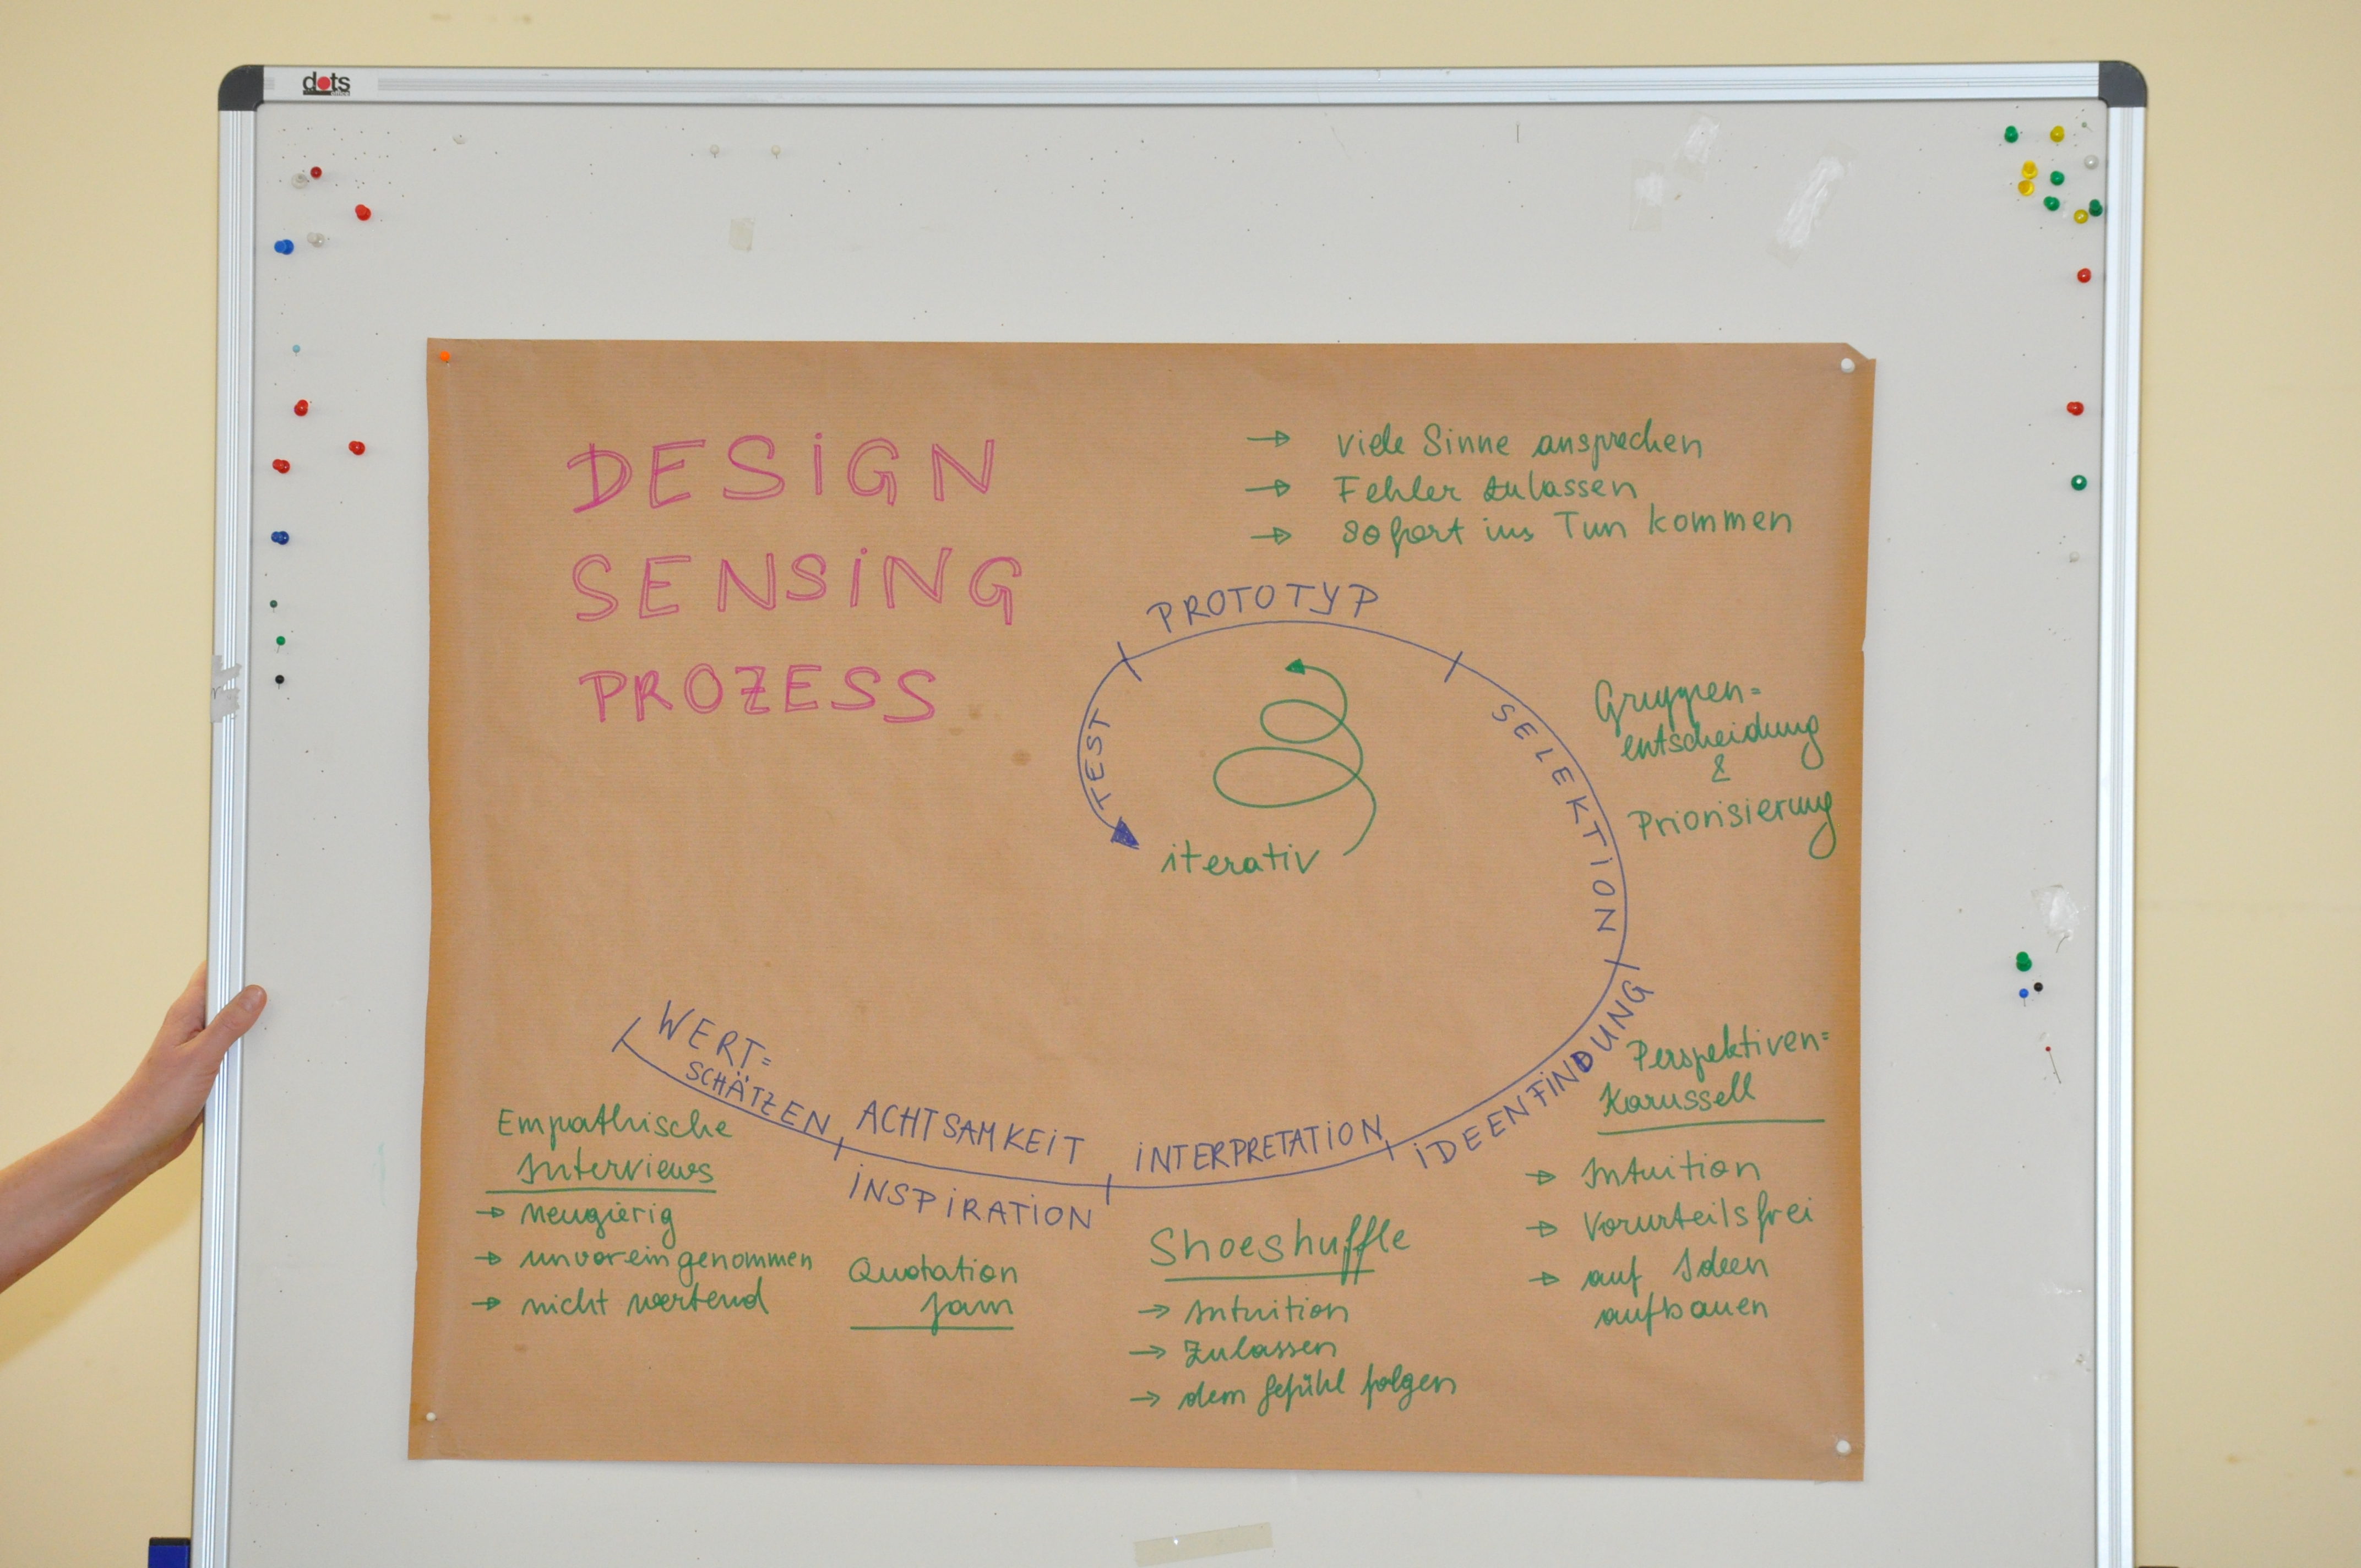 dots
DESiGN
SENSiNG
PROZESS
→ viele Sinne ansprechen
→ Fehler zulassen
→ sofort ins Tun kommen
PROTOTYP
TEST
SELEKTiON
iterativ
Gruppen=
entscheidung
&
Priorisierung
WERT=
SCHÄTZEN
ACHTSAMKEiT
iNSPiRATiON
iNTERPRETATiON
iDEENFiNDUNG
Empathische
Interviews
→ neugierig
→ unvoreingenommen
→ nicht wertend
Quotation
Jam
Shoeshuffle
→ Intuition
→ Zulassen
→ dem Gefühl folgen
Perspektiven=
Karussell
→ Intuition
→ Vorurteilsfrei
→ auf Ideen
aufbauen